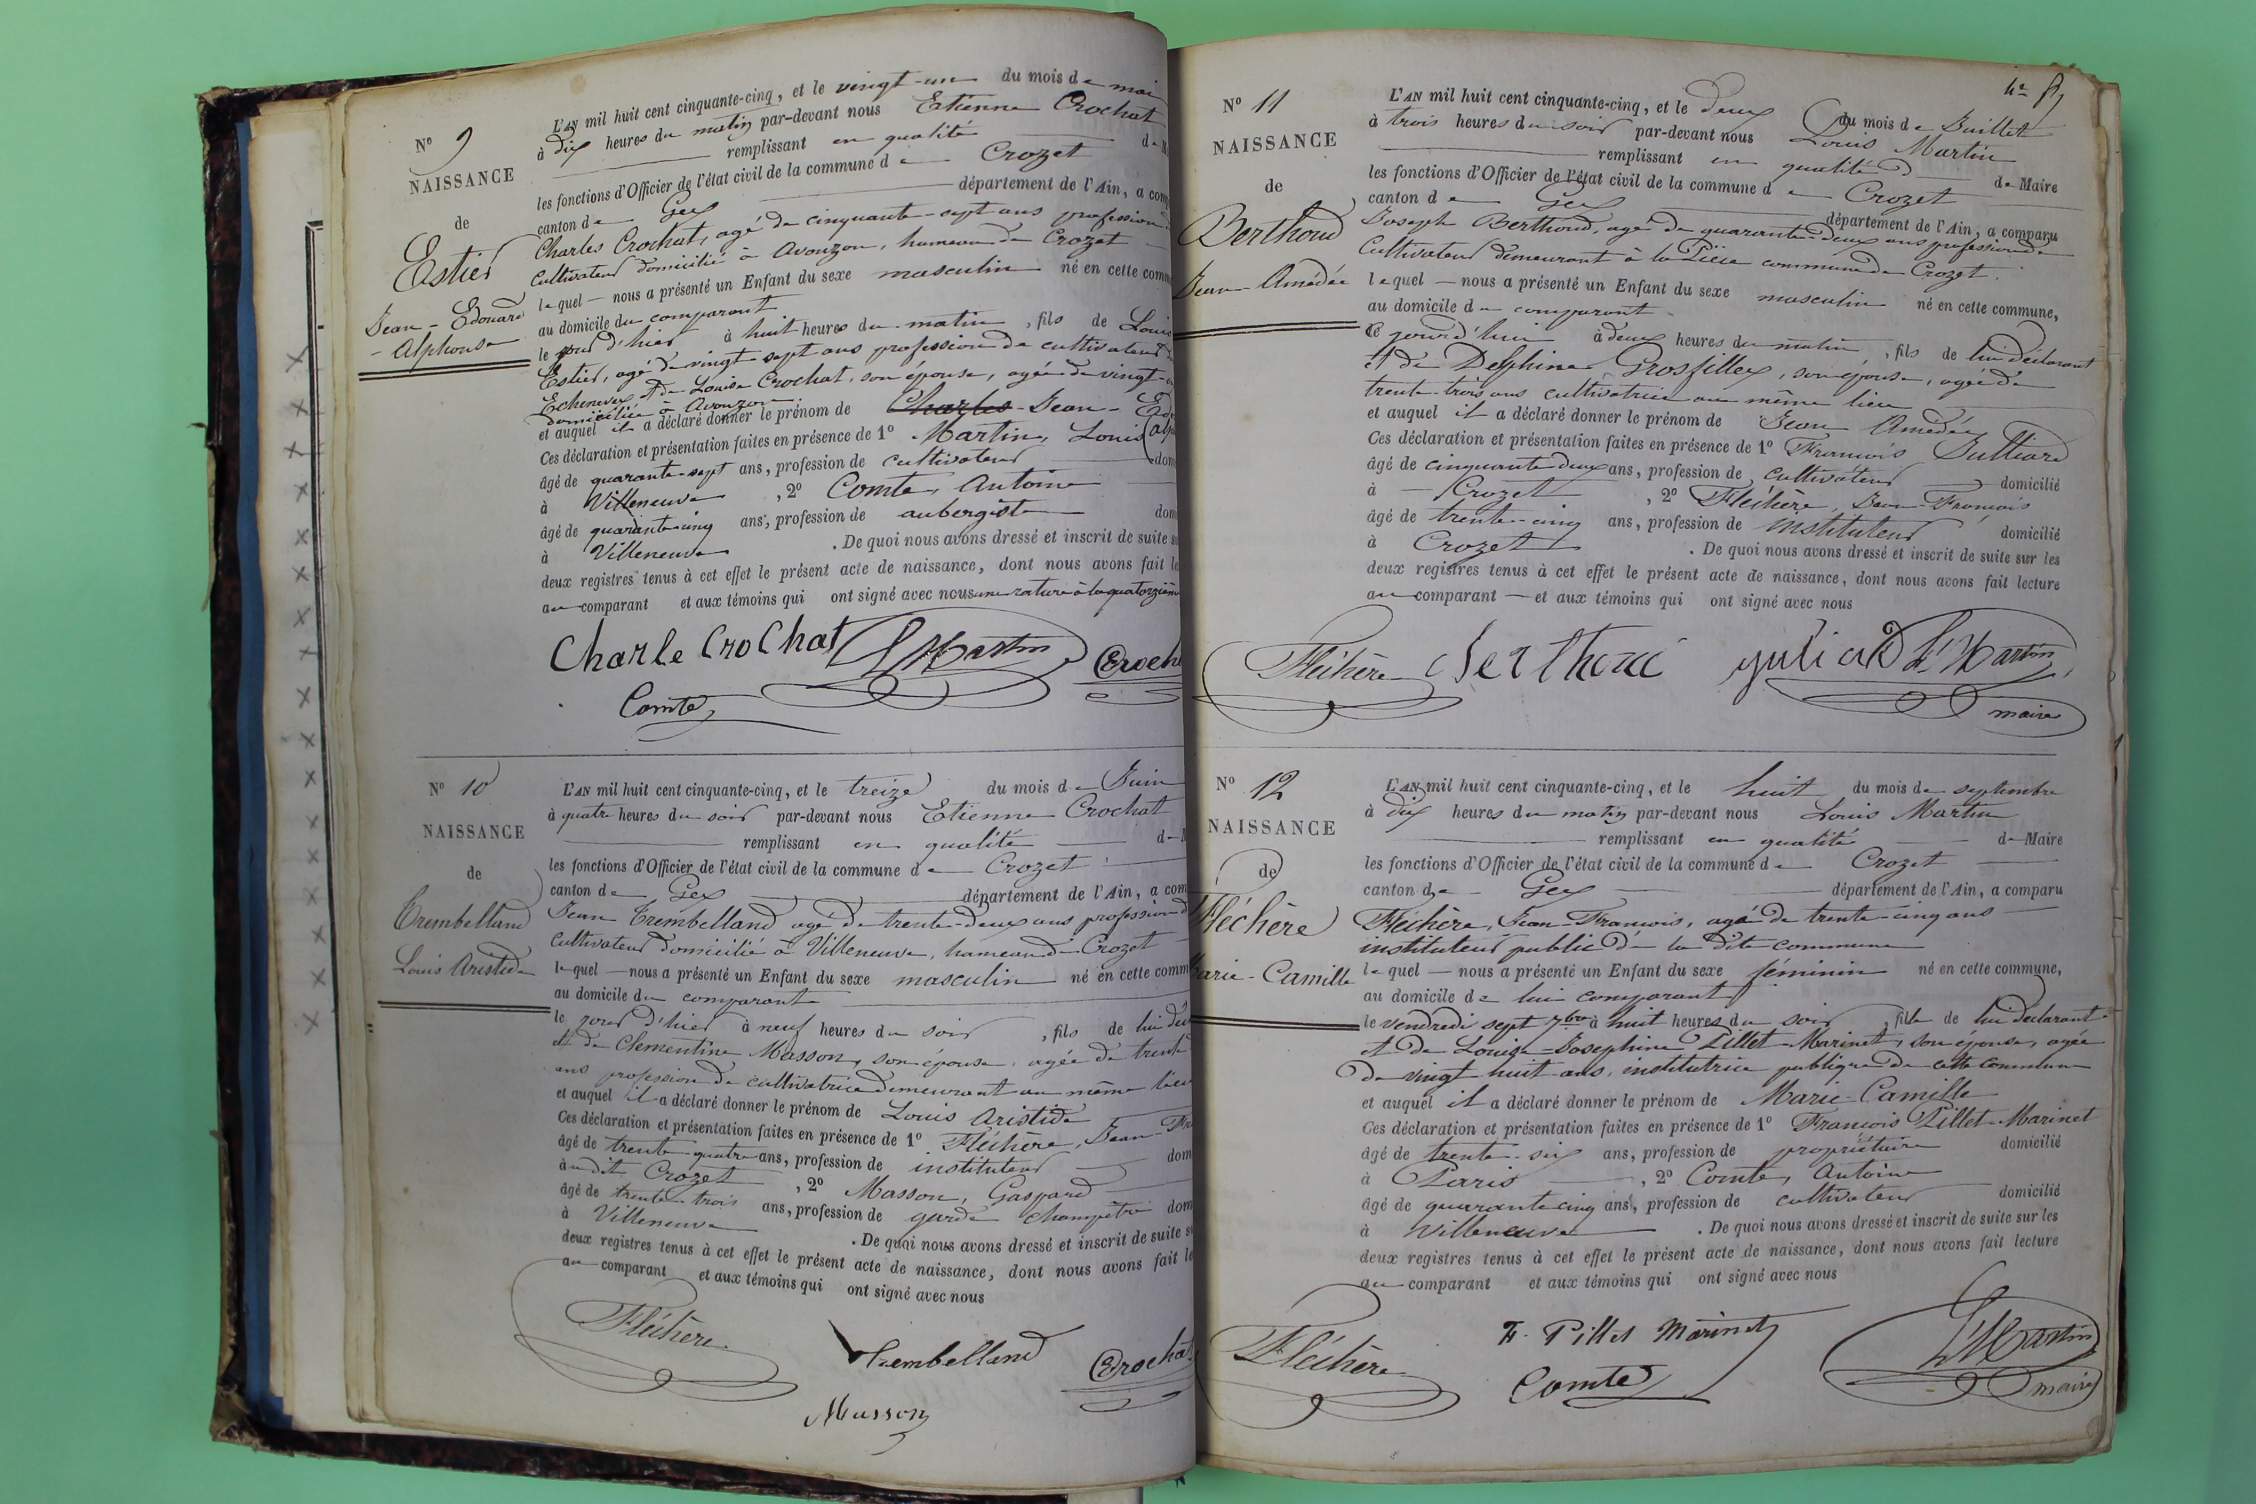 N° 9
NAISSANCE
de
Estier
Jean-Edouard
-Alphonse
L'AN mil huit cent cinquante-cinq, et le vingt-un du mois de mai
à dix heures du matin par-devant nous Etienne Crochat
remplissant en qualité de
les fonctions d'Officier de l'état civil de la commune de Crozet
canton de Gex département de l'Ain, a comp
Charles Crochat, agé de cinquante-sept ans profession
cultivateur domicilié à Avouzon, hameau de Crozet
lequel nous a présenté un Enfant du sexe masculin né en cette comm
au domicile du comparant
le jour d'hier à huit heures du matin, fils de Louis
Estier, agé de vingt-sept ans profession de cultivateur
Echenevex et de Louise Crochat, son épouse, agée de vingt
domiciliée à Avouzon
et auquel il a déclaré donner le prénom de Charles-Jean-Ed
Ces déclaration et présentation faites en présence de 1° Martin, Louis (Alp
âgé de quarante-sept ans, profession de cultivateur dom
à Villeneuve, 2° Comte, Antoine
âgé de quarante-cinq ans, profession de aubergiste dom
à Villeneuve. De quoi nous avons dressé et inscrit de suite s
deux registres tenus à cet effet le présent acte de naissance, dont nous avons fait le
au comparant et aux témoins qui ont signé avec nous une rature à la quatorzièm
Charle CroChat L Martin Croch
Comte
N° 10
NAISSANCE
de
Trembelland
Louis Aristide
L'AN mil huit cent cinquante-cinq, et le treize du mois de Juin
à quatre heures du soir par-devant nous Etienne Crochat
remplissant en qualité de
les fonctions d'Officier de l'état civil de la commune de Crozet
canton de Gex département de l'Ain, a com
Jean Trembelland agé de trente-deux ans profession d
cultivateur domicilié à Villeneuve, hameau de Crozet
lequel nous a présenté un Enfant du sexe masculin né en cette comm
au domicile du comparant
le jour d'hier à neuf heures du soir, fils de lui déc
et de Clementine Masson, son épouse, agée de trente
ans profession de cultivatrice demeurant au même lieu
et auquel il a déclaré donner le prénom de Louis Aristide
Ces déclaration et présentation faites en présence de 1° Fléchère, Jean-Fr
âgé de trente-quatre ans, profession de instituteur dom
à dit Crozet, 2° Masson, Gaspard
âgé de trente-trois ans, profession de garde champêtre dom
à Villeneuve. De quoi nous avons dressé et inscrit de suite s
deux registres tenus à cet effet le présent acte de naissance, dont nous avons fait le
au comparant et aux témoins qui ont signé avec nous
Fléchère Trembelland Crochat
Masson
N° 11
NAISSANCE
de
Berthoud
Jean-Amédée
L'AN mil huit cent cinquante-cinq, et le deux du mois de Juillet
à trois heures du soir par-devant nous Louis Martin
remplissant en qualité de Maire
les fonctions d'Officier de l'état civil de la commune de Crozet
canton de Gex département de l'Ain, a comparu
Joseph Berthoud, agé de quarante-deux ans profession de
cultivateur demeurant à la commune de Crozet.
lequel nous a présenté un Enfant du sexe masculin né en cette commune,
au domicile du comparant
ce jourd'hui à deux heures du matin, fils de lui déclarant
et de Delphine Grosfilley, son épouse, agée de
trente-trois ans cultivatrice au même lieu
et auquel il a déclaré donner le prénom de Jean Amédée
Ces déclaration et présentation faites en présence de 1° François Julliard
âgé de cinquante deux ans, profession de cultivateur domicilié
à Crozet, 2° Fléchère, Jean-François
âgé de trente-cinq ans, profession de instituteur domicilié
à Crozet. De quoi nous avons dressé et inscrit de suite sur les
deux registres tenus à cet effet le présent acte de naissance, dont nous avons fait lecture
au comparant et aux témoins qui ont signé avec nous
Fléchère Berthoud juliard Ls Martin
maire
N° 12
NAISSANCE
de
Fléchère
Marie-Camille
L'AN mil huit cent cinquante-cinq, et le huit du mois de septembre
à dix heures du matin par-devant nous Louis Martin
remplissant en qualité de Maire
les fonctions d'Officier de l'état civil de la commune de Crozet
canton de Gex département de l'Ain, a comparu
Fléchère, Jean-François, agé de trente-cinq ans
instituteur public de la dite commune
lequel nous a présenté un Enfant du sexe féminin né en cette commune,
au domicile de lui comparant
le vendredi sept 7bre à huit heures du soir, fille de lui déclarant
et de Louise-Josephine Pillet-Marinet, son épouse, agée
de vingt huit ans, institutrice publique de cette commune
et auquel il a déclaré donner le prénom de Marie-Camille
Ces déclaration et présentation faites en présence de 1° François Pillet-Marinet
âgé de trente-six ans, profession de propriétaire domicilié
à Paris, 2° Comte, Antoine
âgé de quarante cinq ans, profession de cultivateur domicilié
à Villeneuve. De quoi nous avons dressé et inscrit de suite sur les
deux registres tenus à cet effet le présent acte de naissance, dont nous avons fait lecture
au comparant et aux témoins qui ont signé avec nous
Fléchère F. Pillet Marinet Ls Martin
Comte maire